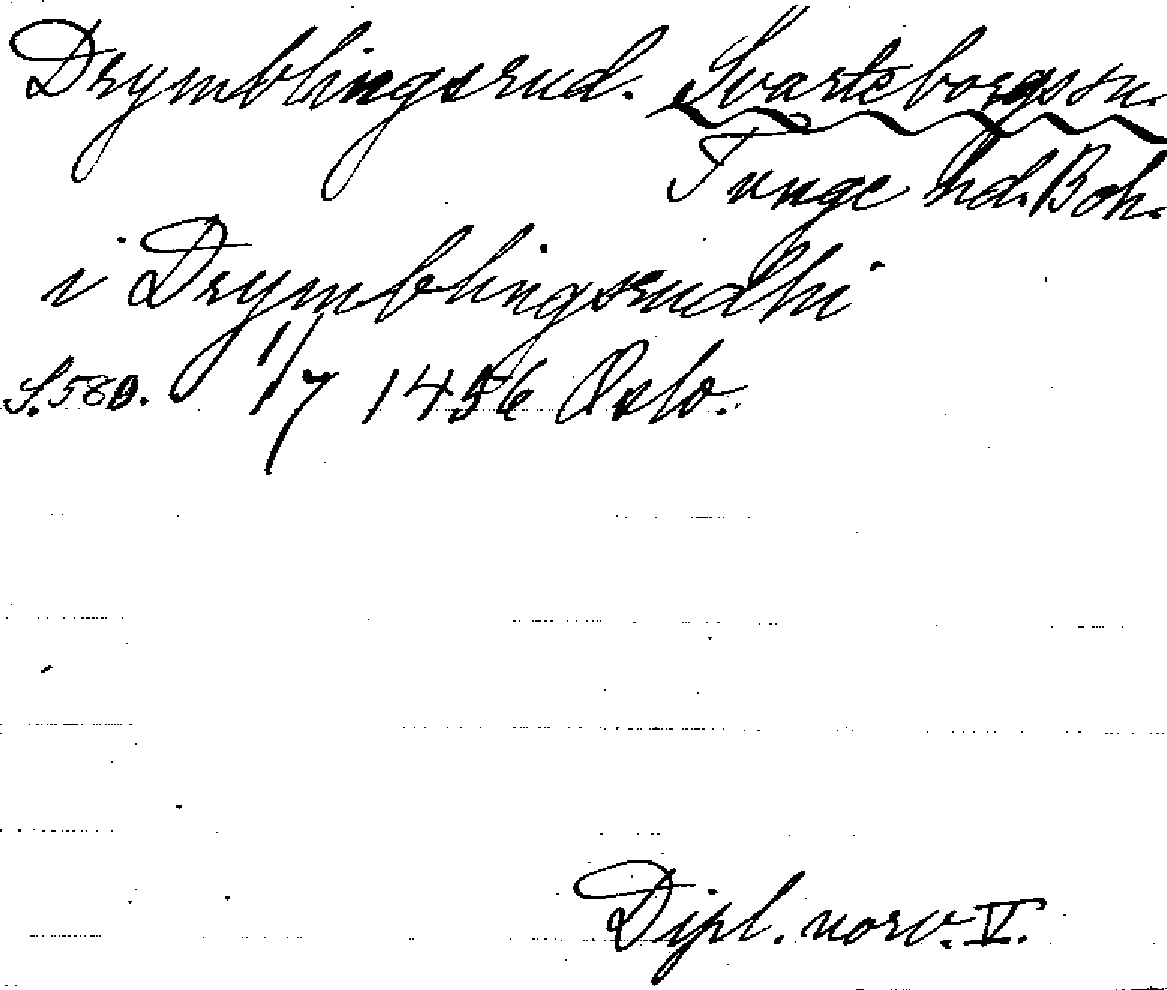 Drymblingsrud. Svarteborgs sn.
Tunge hd. Boh.
i Drymblingsrudhi
S. 580. 1/7 1456 Oslo.
Dipl. norv. V.